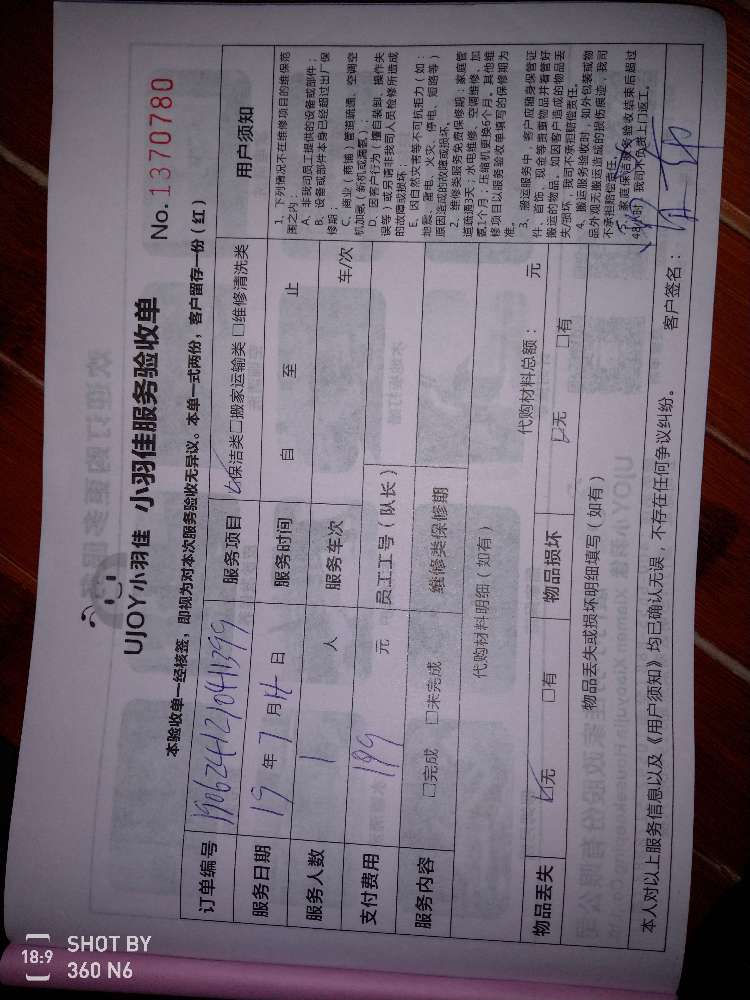 UJOY小羽佳 小羽佳服务验收单
No. 1370780
本验收单一经核签，即视为对本次服务验收无异议。本单一式两份，客户留存一份（红）
订单编号 服务项目 ☑保洁类□搬家运输类 □维修清洗类
服务日期 19 年 7 月 14 日 服务时间 自 至 止
服务人数 1 人 服务车次 车/次
支付费用 199 元 员工工号（队长）
服务内容 □完成 □未完成 维修类保修期
代购材料明细（如有） 代购材料总额： 元
物品丢失 ☑无 □有 物品损坏 ☑无 □有
物品丢失或损坏明细填写（如有）
用户须知
1、下列情况不在维修项目的维保范
围之内：
A、非我司员工提供的设备或部件；
B、设备或部件本身已经超过出厂保
修期；
C、商业（商铺）管道疏通、空调空
机加氨（新机或漏氨）；
D、因客户行为（擅自装卸、操作失
误等）或另请非我司人员检修所造成
的故障或损坏；
E、因自然灾害等不可抗拒力（如：
地震、雷电、火灾、停电、短路等）
原因造成的故障或损坏。
2、维修类服务免费保修期：家庭管
道疏通3天；水电维修、空调维修、加
氨1个月；压缩机更换6个月。其他维
修项目以服务验收单填写的保修期为
准。
3、搬运服务中，客户应随身保管证
件、首饰、现金等贵重物品并看管好
搬运的物品。如因客户造成的物品丢
失/损坏，我司不承担赔偿责任。
4、搬运服务验收时，如外包装或物
品外观无搬运造成的损伤痕迹，我司
不承担赔偿责任。
5、家庭保洁服务验收结束后超过
48小时，我司不负责上门返工。
本人对以上服务信息以及《用户须知》均已确认无误，不存在任何争议纠纷。 客户签名：
18:9 SHOT BY
360 N6